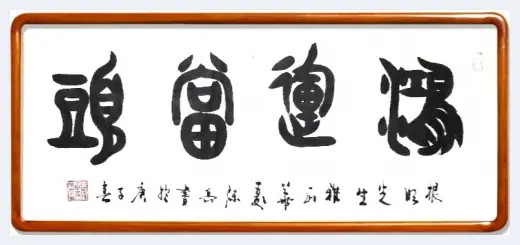 鴻運當頭
根明先生雅正華夏陈書於庚子春